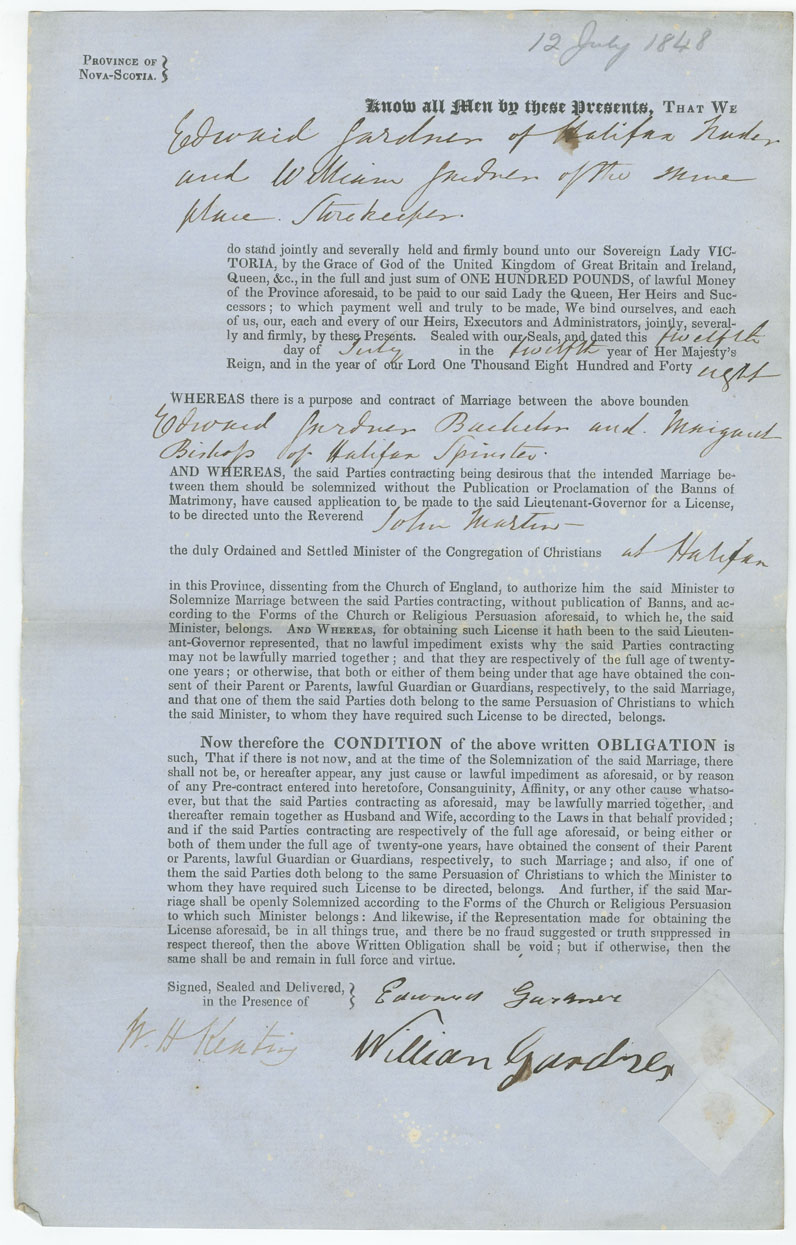 12 July 1848
PROVINCE OF
NOVA-SCOTIA.
Know all Men by these Presents, THAT WE
Edward Gardner of Halifax Trader
and William Gardner of the same
place. Storekeeper.
do stand jointly and severally held and firmly bound unto our Sovereign Lady VIC-
TORIA, by the Grace of God of the United Kingdom of Great Britain and Ireland,
Queen, &c., in the full and just sum of ONE HUNDRED POUNDS, of lawful Money
of the Province aforesaid, to be paid to our said Lady the Queen, Her Heirs and Suc-
cessors; to which payment well and truly to be made, We bind ourselves, and each
of us, our, each and every of our Heirs, Executors and Administrators, jointly, several-
ly and firmly, by these Presents. Sealed with our Seals, and dated this twelfth
day of July in the twelfth year of Her Majesty's
Reign, and in the year of our Lord One Thousand Eight Hundred and Forty eight
WHEREAS there is a purpose and contract of Marriage between the above bounden
Edward Gardner Bachelor and Margaret
Bishop of Halifax Spinster.
AND WHEREAS, the said Parties contracting being desirous that the intended Marriage be-
tween them should be solemnized without the Publication or Proclamation of the Banns of
Matrimony, have caused application to be made to the said Lieutenant-Governor for a License,
to be directed unto the Reverend John Martin
the duly Ordained and Settled Minister of the Congregation of Christians at Halifax
in this Province, dissenting from the Church of England, to authorize him the said Minister to
Solemnize Marriage between the said Parties contracting, without publication of Banns, and ac-
cording to the Forms of the Church or Religious Persuasion aforesaid, to which he, the said
Minister, belongs. AND WHEREAS, for obtaining such License it hath been to the said Lieuten-
ant-Governor represented, that no lawful impediment exists why the said Parties contracting
may not be lawfully married together; and that they are respectively of the full age of twenty-
one years; or otherwise, that both or either of them being under that age have obtained the con-
sent of their Parent or Parents, lawful Guardian or Guardians, respectively, to the said Marriage,
and that one of them the said Parties doth belong to the same Persuasion of Christians to which
the said Minister, to whom they have required such License to be directed, belongs.
Now therefore the CONDITION of the above written OBLIGATION is
such, That if there is not now, and at the time of the Solemnization of the said Marriage, there
shall not be, or hereafter appear, any just cause or lawful impediment as aforesaid, or by reason
of any Pre-contract entered into heretofore, Consanguinity, Affinity, or any other cause whatso-
ever, but that the said Parties contracting as aforesaid, may be lawfully married together, and
thereafter remain together as Husband and Wife, according to the Laws in that behalf provided;
and if the said Parties contracting are respectively of the full age aforesaid, or being either or
both of them under the full age of twenty-one years, have obtained the consent of their Parent
or Parents, lawful Guardian or Guardians, respectively, to such Marriage; and also, if one of
them the said Parties doth belong to the same Persuasion of Christians to which the Minister to
whom they have required such License to be directed, belongs. And further, if the said Mar-
riage shall be openly Solemnized according to the Forms of the Church or Religious Persuasion
to which such Minister belongs: And likewise, if the Representation made for obtaining the
License aforesaid, be in all things true, and there be no fraud suggested or truth suppressed in
respect thereof, then the above Written Obligation shall be void; but if otherwise, then the
same shall be and remain in full force and virtue.
Signed, Sealed and Delivered,
in the Presence of
Edward Gardner
W. H Keating
William Gardner